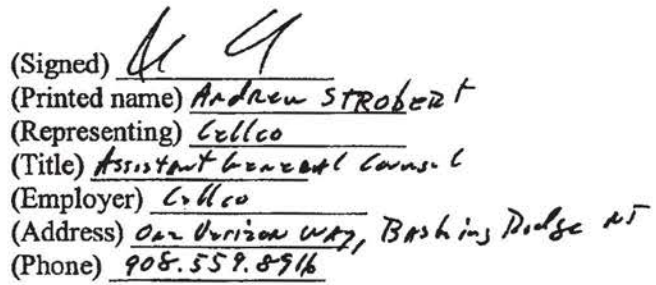 (Signed)
(Printed name) Andrew STROBERT
(Representing) Cellco
(Title) Assistant General Counsel
(Employer) Cellco
(Address) One Verizon Way, Basking Ridge NJ
(Phone) 908.559.8916